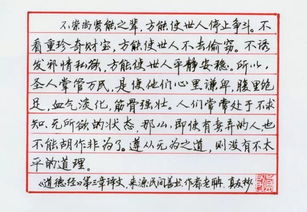 不崇尚贤能之辈，方能使世人停止争斗。不
看重珍奇财宝，方能使世人不去偷窃。不诱
发邪情私欲，方能使世人平静安稳。所以，
圣人掌管万民，是使他们心里谦卑，腹里饱
足，血气淡化，筋骨强壮。人们常常处于不求
知、无所欲的状态，那么，即使有卖弄的人，也
不能胡作非为了。遵从无为之道，则没有不太
平的道理。
《道德经》第三章译文，来源民间善书，作者老聃